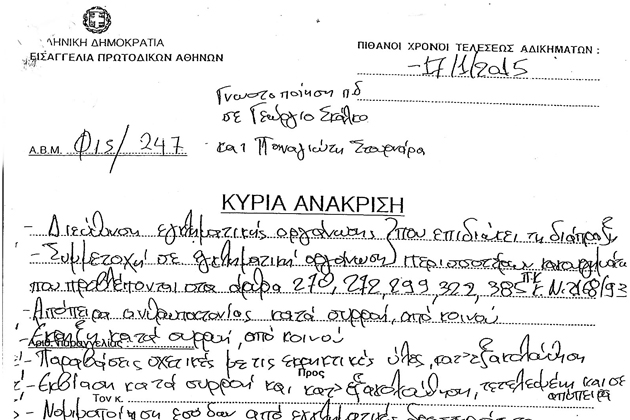 ΛΗΝΙΚΗ ΔΗΜΟΚΡΑΤΙΑ
ΕΙΣΑΓΓΕΛΙΑ ΠΡΩΤΟΔΙΚΩΝ ΑΘΗΝΩΝ
ΠΙΘΑΝΟΙ ΧΡΟΝΟΙ ΤΕΛΕΣΕΩΣ ΑΔΙΚΗΜΑΤΩΝ :
-17/1/2015
Γνωστοποίηση π.δ
σε Γεώργιο
Α.Β.Μ. Φ15/247
και Παναγιώτη
ΚΥΡΙΑ ΑΝΑΚΡΙΣΗ
- Διεύθυνση εγκληματικής οργάνωσης που επιδιώκει τη διάπραξη
- Συμμετοχή σε εγκληματική οργάνωση περισσοτέρων κακουργημάτων
που προβλέπονται στα άρθρα 270, 272, 299, 322, 385 Π.Κ. Ν. 2168/93
- Απόπειρα ανθρωποκτονίας κατά συρροή, από κοινού
- Έκρηξη κατά συρροή, από κοινού
Αριθ. Παραγγελίας
- Παραβάσεις σχετικές με τις εκρηκτικές ύλες, κατ' εξακολούθηση
Προς
- Εκβίαση κατά συρροή και κατ' εξακολούθηση, τετελεσμένη και σε απόπειρα
Τον κ.
- Νομιμοποίηση εσόδων από εγκληματικές